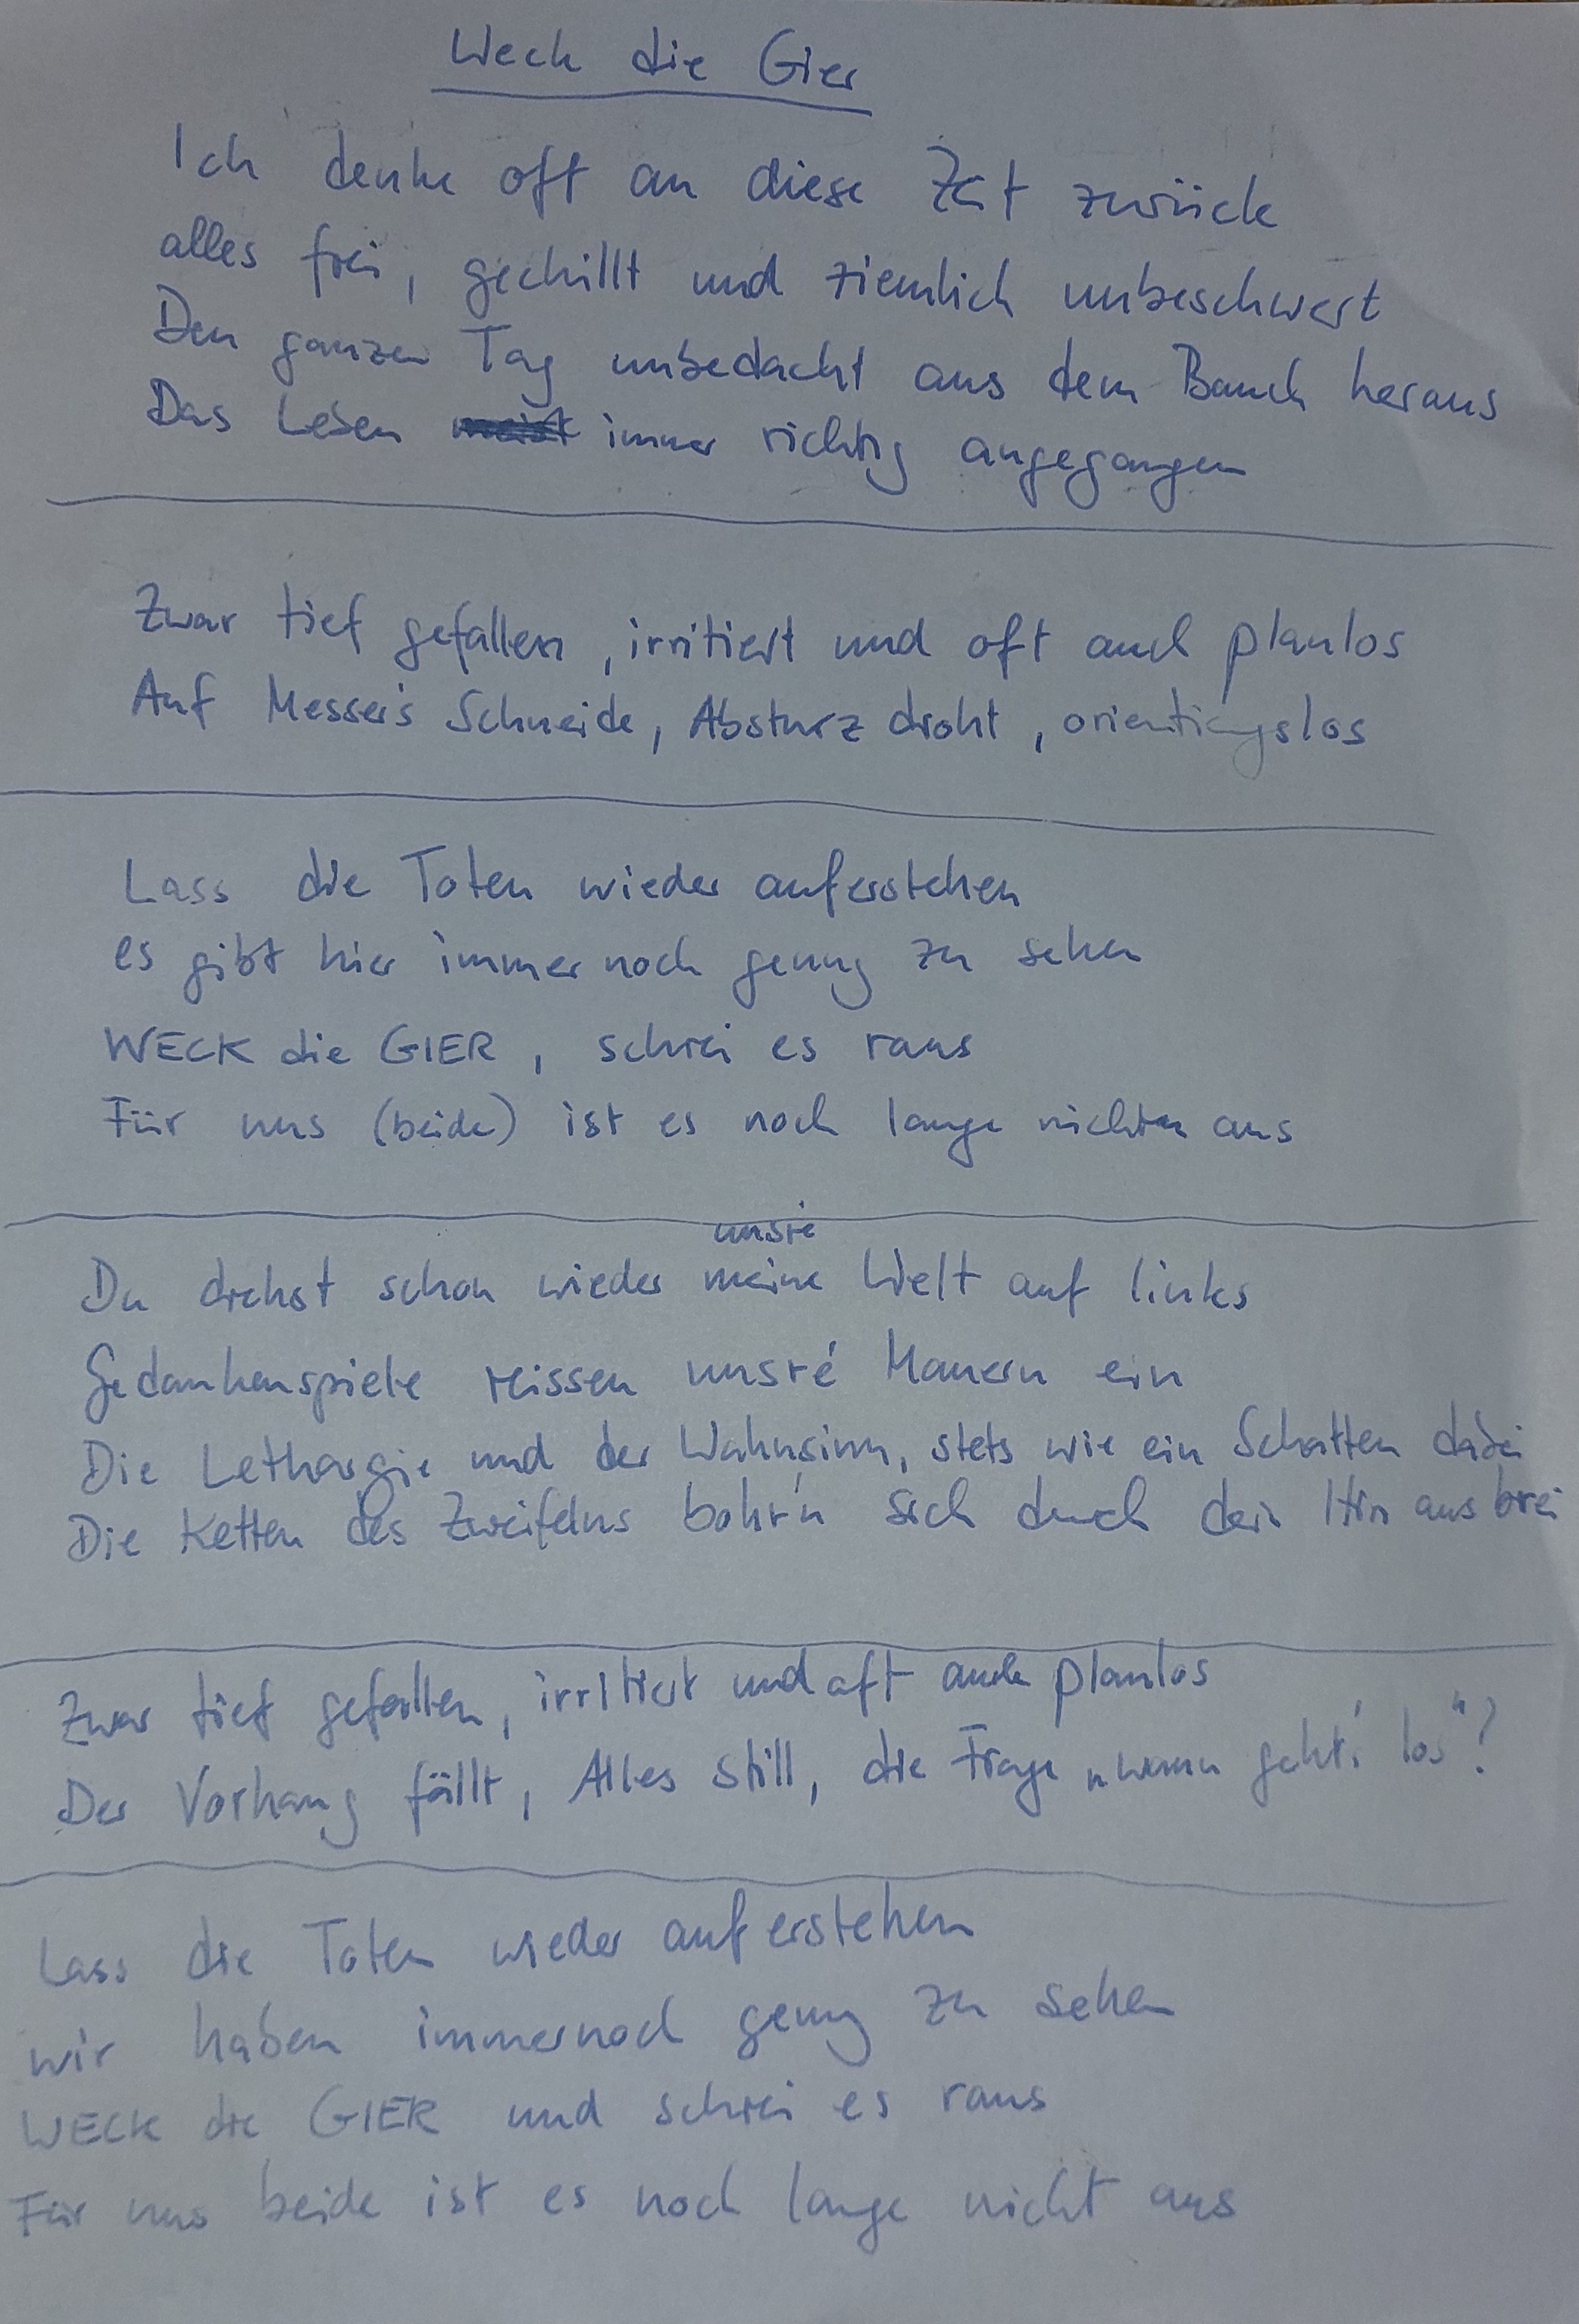 Weck die Gier
Ich denke oft an diese Zeit zurück
alles frei, gechillt und ziemlich unbeschwert
Den ganzen Tag unbedacht aus dem Bauch heraus
Das Leben immer richtig angegangen
Zwar tief gefallen, irritiert und oft auch planlos
Auf Messer's Schneide, Absturz droht, orientiungslos
Lass die Toten wieder auferstehen
es gibt hier immer noch genug zu sehen
WECK die GIER, schrei es raus
Für uns (beide) ist es noch lange nicht aus
unsre
Du drehst schon wieder meine Welt auf links
Gedankenspiele reissen unsre' Mauern ein
Die Lethargie und der Wahnsinn, stets wie ein Schatten dabei
Die Ketten des Zweifelns bohr'n sich durch dein Hirn aus brei
Zwar tief gefallen, irritiert und oft auch planlos
Der Vorhang fällt, Alles still, die Frage „wann geht's los"?
Lass die Toten wieder auferstehen
wir haben immernoch genug zu sehen
WECK die GIER und schrei es raus
Für uns beide ist es noch lange nicht aus